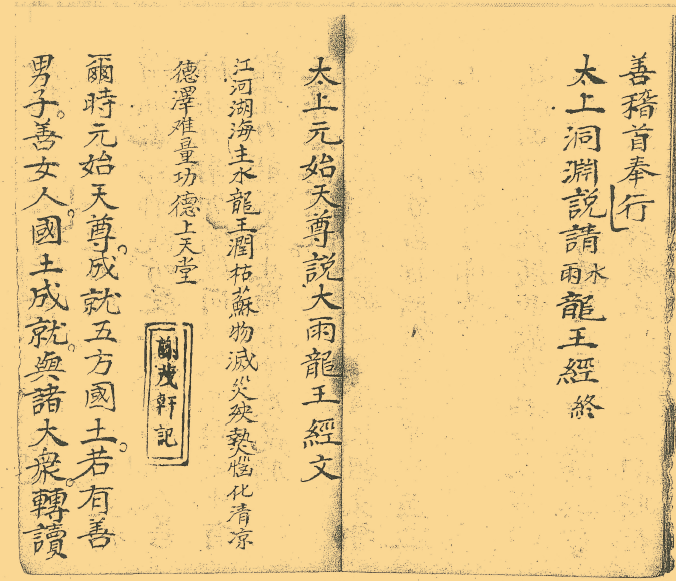 善稽首奉行
太上洞淵説請雨水龍王經終
太上元始天尊説大雨龍王經文
江河湖海主水龍王潤枯蘇物滅災殃熱惱化清凉
德澤难量功德上天堂
茂軒記
爾時元始天尊。成就五方國土。若有善
男子。善女人。國土成就。與諸大衆。轉讀